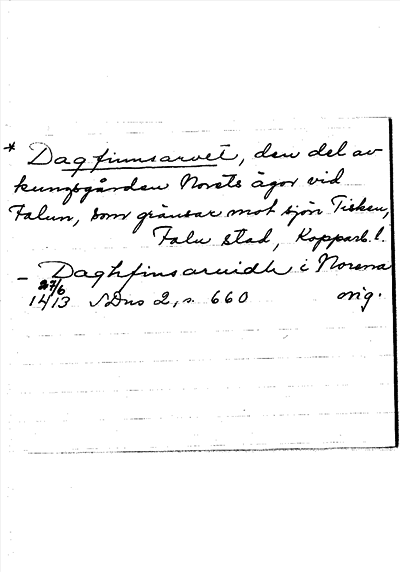 * Dagfinnsarvet, den del av
kungsgården Norets ägor vid
Falun, som gränsar mot sjön Tisken,
Falu stad, Kopparb. l.
- Daghfinsaruidh i Norena
27/6
1413 SDns 2, s. 660 orig.